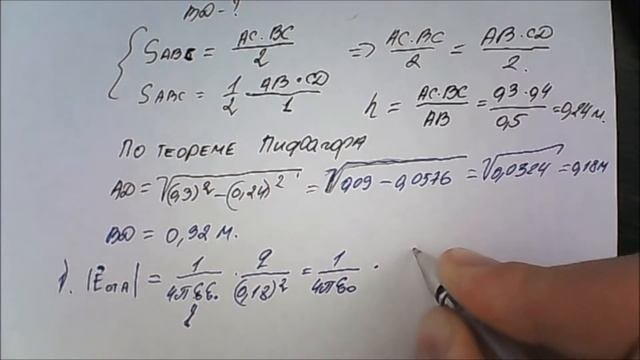 BD - ?
S ABC = AC·BC / 2 ⇒ AC·BC / 2 = AB·CD / 2.
S ABC = 1/2 AB·CD / 1
h = AC·BC / AB = 0,3·0,4 / 0,5 = 0,24 м.
По теореме Пифагора
AD = √(0,3)² - (0,24)² = √0,09 - 0,0576 = √0,0324 = 0,18 м
BD = 0,32 м.
1. |E от A| = 1 / 4πεε₀ · q / (0,18)² = 1 / 4πε₀ ·